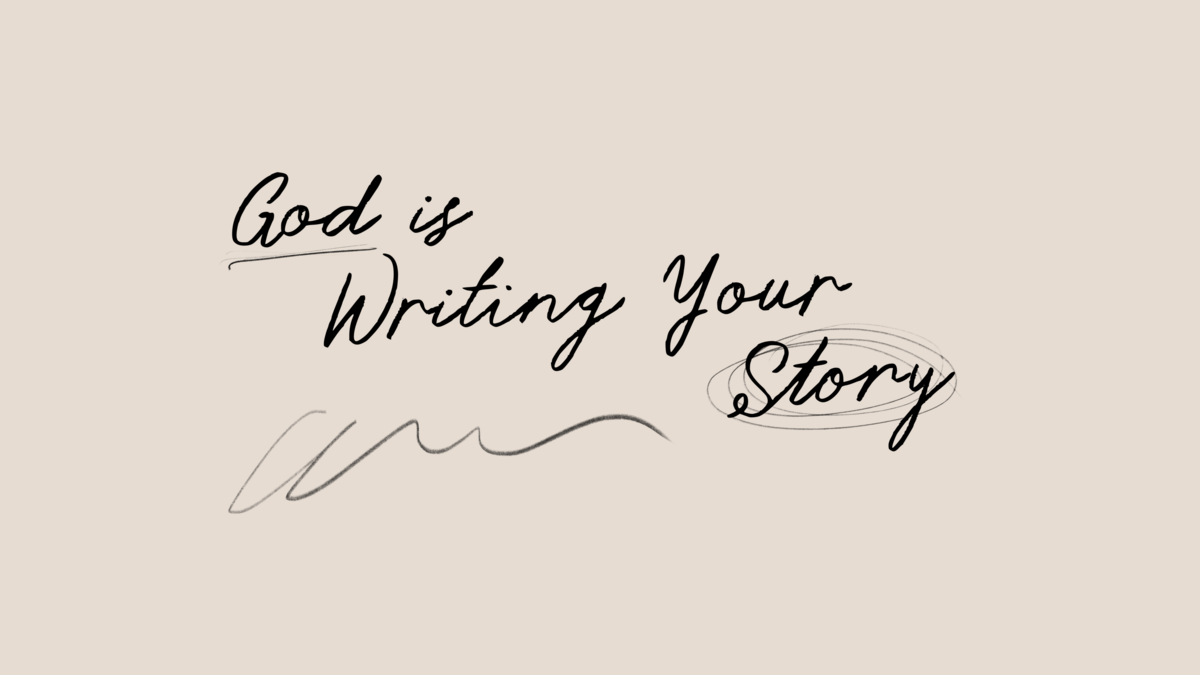 God is
Writing Your
Story